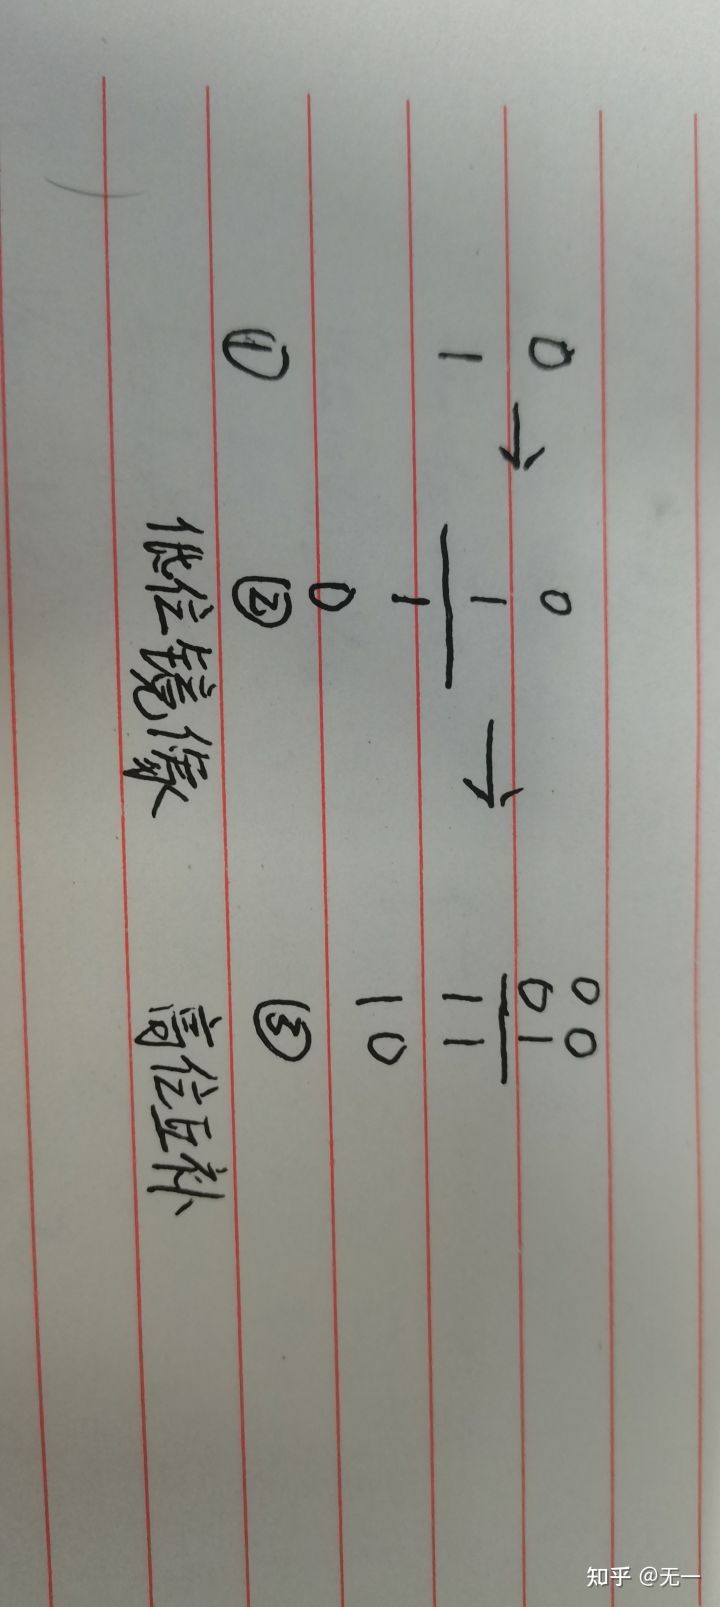 0 → 0 → 00
1 1 01
1 11
0 10
① ② ③
低位镜像 高位互补
知乎 @无一